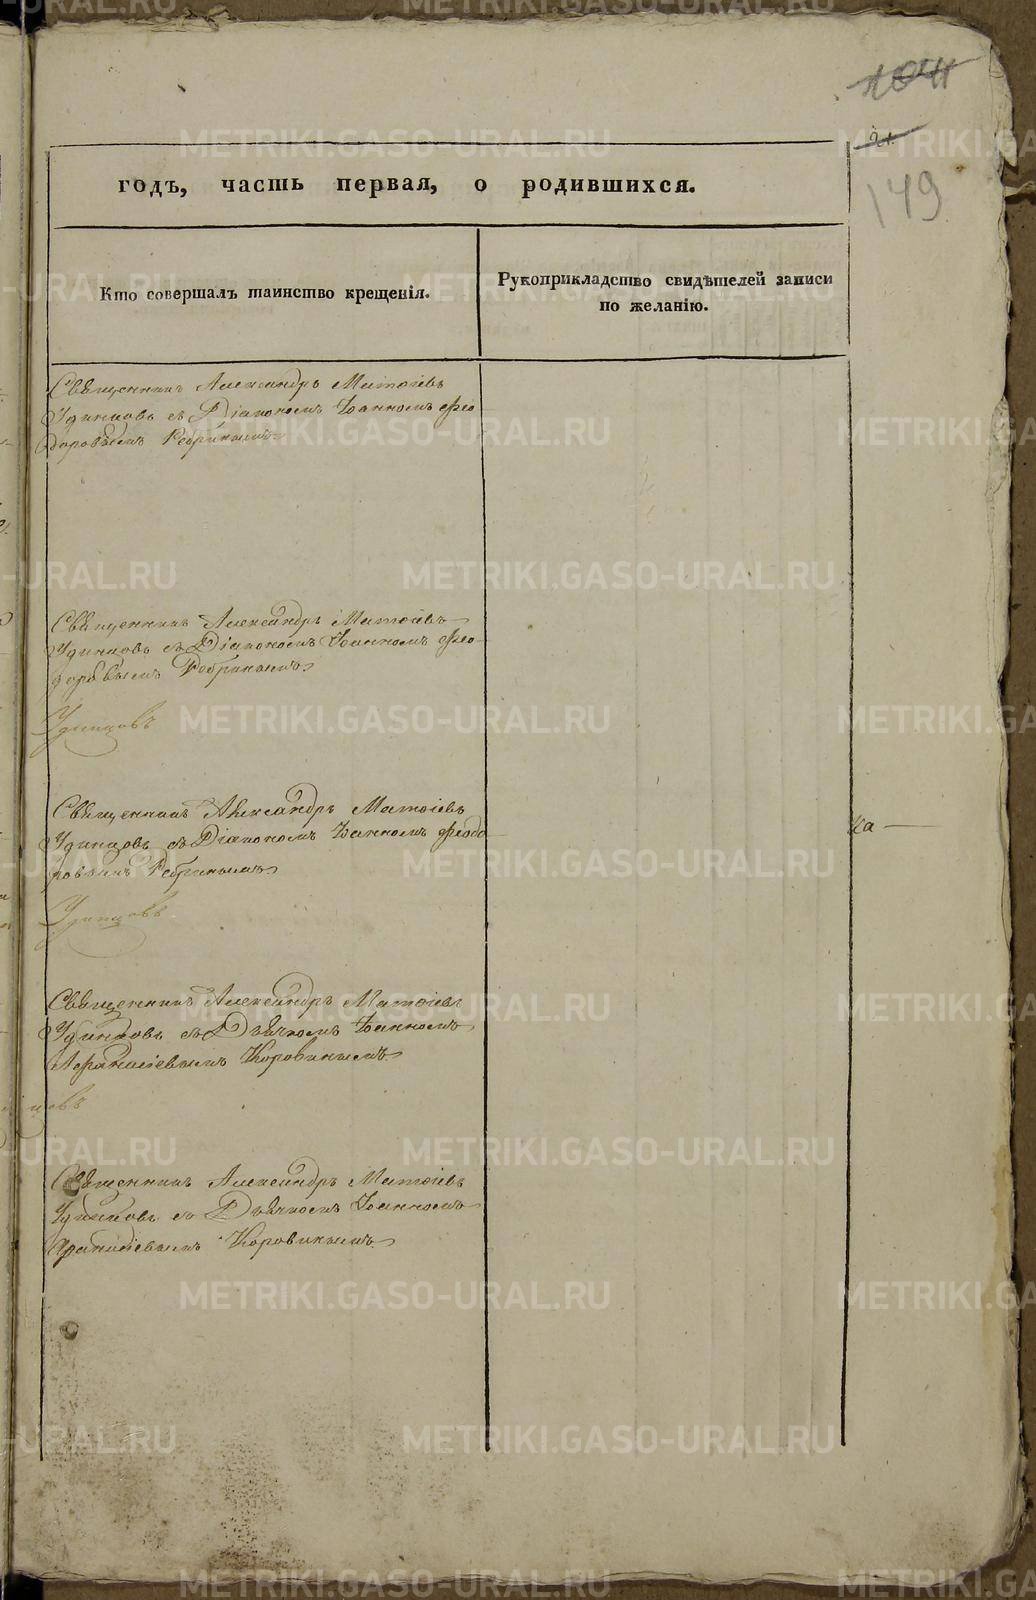 1041
21.
149
годъ, часть первая, о родившихся.
Кто совершалъ таинство крещенія.
Рукоприкладство свидѣтелей записи
по желанію.
Священникъ Александръ Матѳіевъ
Удинцовъ съ Діакономъ Іоанномъ Ѳео
доровымъ Ребринымъ
Священникъ Александръ Матѳіевъ
Удинцовъ съ Діакономъ Іоанномъ Ѳео-
доровымъ Ребринымъ
Удинцовъ
Священникъ Александръ Матѳіевъ
Удинцовъ съ Діакономъ Іоанномъ Ѳеодо
ровымъ Ребринымъ
Удинцовъ
ка —
Священникъ Александръ Матѳіевъ
Удинцовъ съ Дьячкомъ Іоанномъ
Афанасіевымъ Коровинымъ
цовъ
Священникъ Александръ Матѳіевъ
Удинцовъ съ Дьячкомъ Іоанномъ
Афанасіевымъ Коровинымъ
METRIKI.GASO-URAL.RU